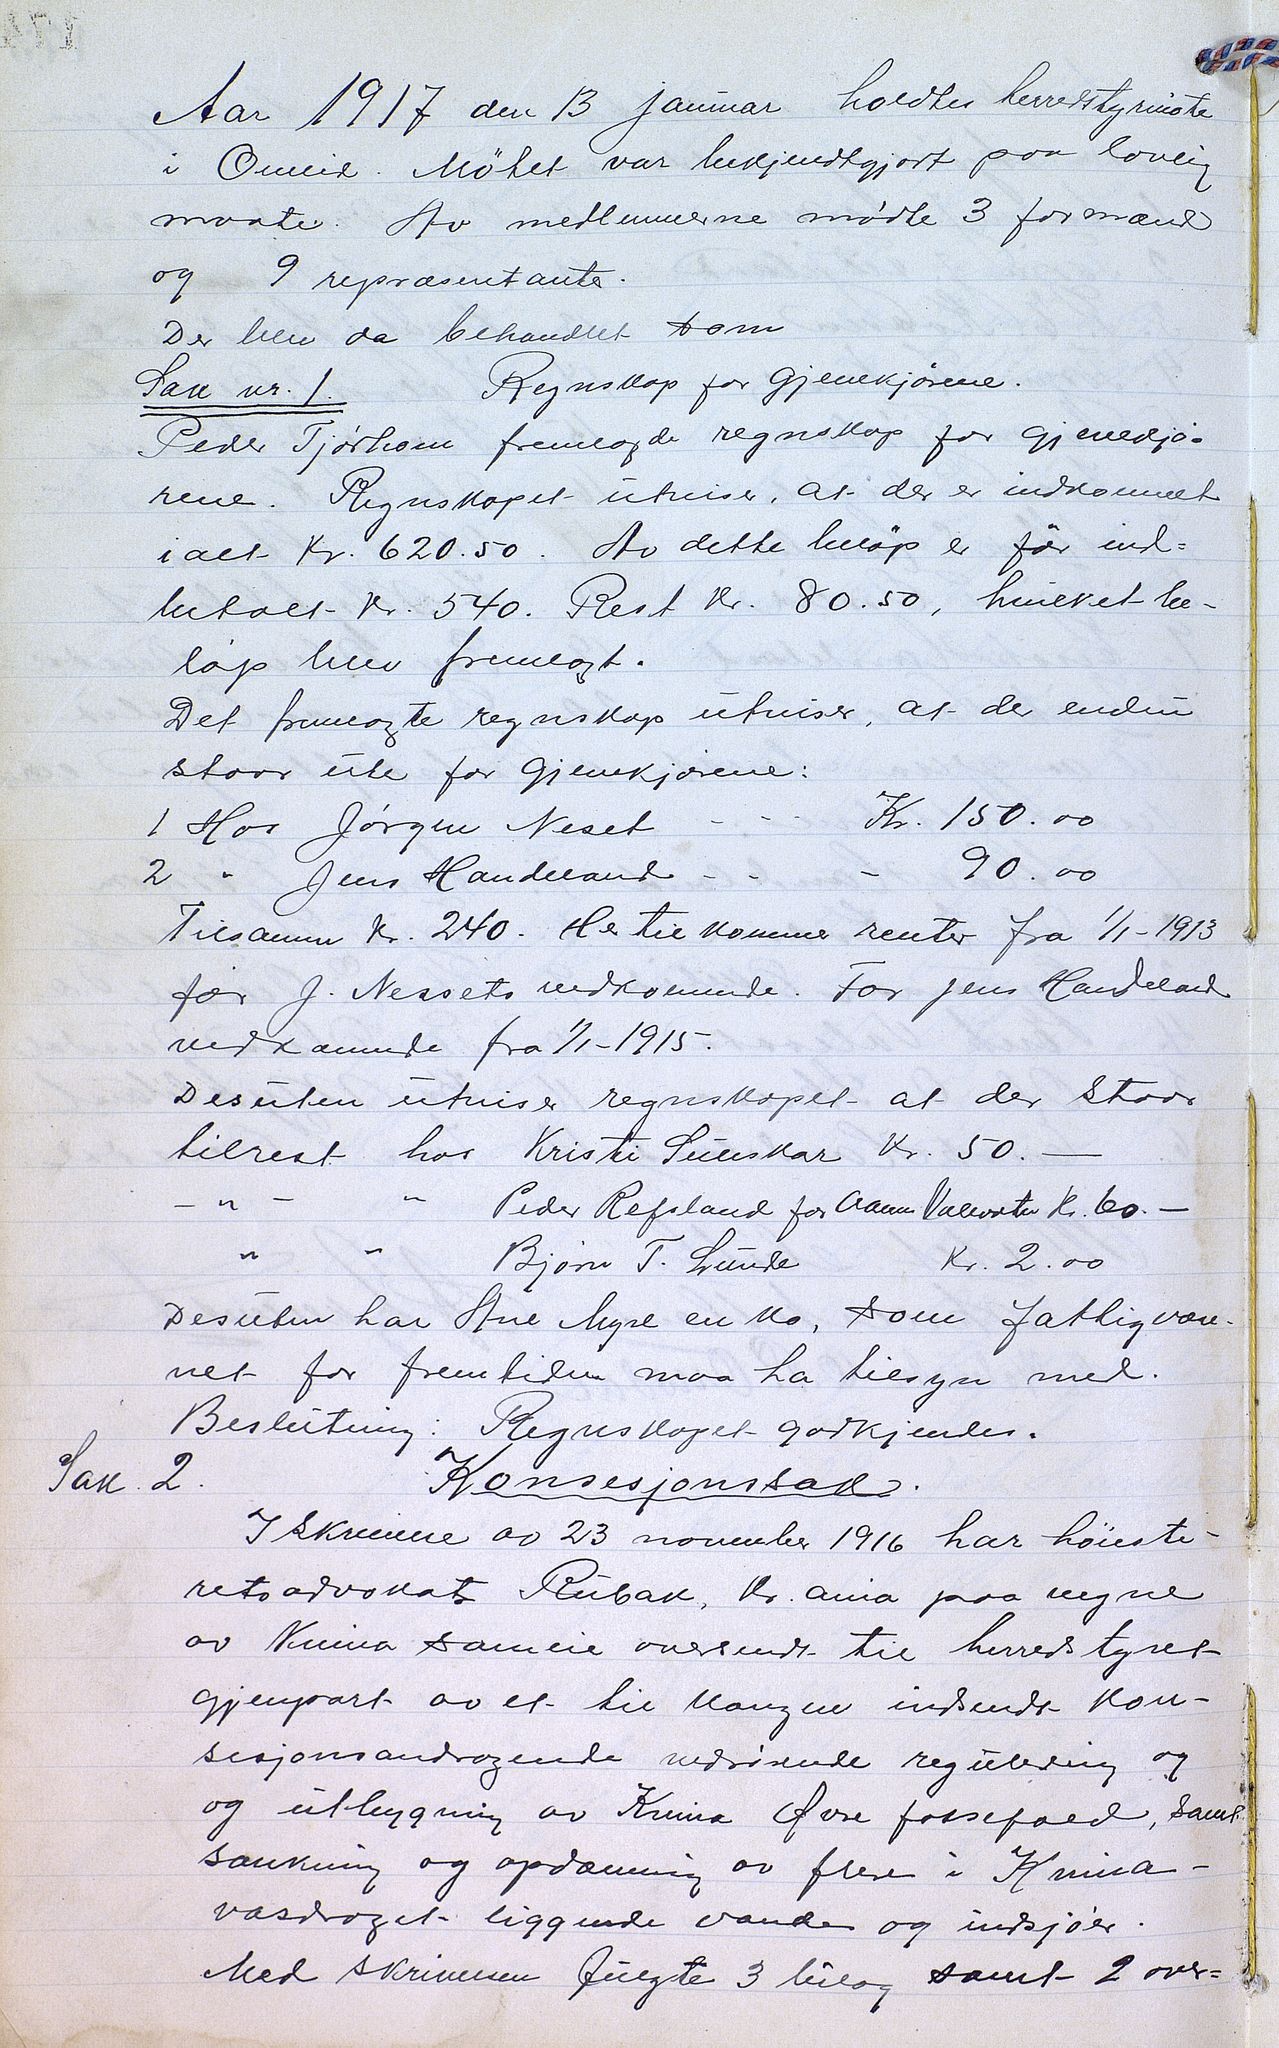 Aar 1917 den 13 januar holdtes herredstyrmøte
i Omeid. Møtet var bekjendtgjort paa lovlig
maate. Av medlemmerne mødte 3 formænd
og 9 repræsentanter.
Der blev da behandlet som
Sak nr. 1. Regnskap for Gjenekjørene.
Peder Tjørhom fremlagde regnskap for gjenekjø-
rene. Regnskapet utviser, at der er indkommet
ialt Kr. 620.50. Av dette beløp er før ind=
betalt Kr. 540. Rest Kr. 80.50, hvilket be-
løp blev fremlagt.
Det fremlagte regnskap utviser, at der endnu
staar ute for Gjenekjørene:
1 Hos Jørgen Neset - - - Kr. 150.00
2 " Jens Handeland - - - 90.00
Tilsamm Kr. 240. Her til kommer renter fra 1/1-1913
for J. Nessets vedkommende. For Jens Handeland
vedkommende fra 1/1-1915.
Desuten utviser regnskapet at der staar
tilrest hos Kristi Suleskar Kr. 50.—
- " - " Peder Refsland for Aanen Valevatn Kr. 60.—
" " Bjørn T. Lunde Kr. 2.00
Desuten har Ane Myre en ko, som fattigvæse-
net for fremtiden maa ha tilsyn med.
Beslutning: Regnskapet godkjendes.
Sak 2. Konsesjonssak.
I skrivelse av 23 november 1916 har høieste-
retsadvokat Rubak, Kr. ania paa vegne
av Kvina sameie oversendt til herredstyret
gjenpart av et til Kongen indsendt kon-
sesjonsandragende vedrørende regulering og
og utbygning av Kvina Øvre fossefald, samt
sænkning og opdæmning av flere i Kvina-
vasdraget liggende vande og indsjøer.
Med skrivelsen fulgte 3 bilag samt 2 over=